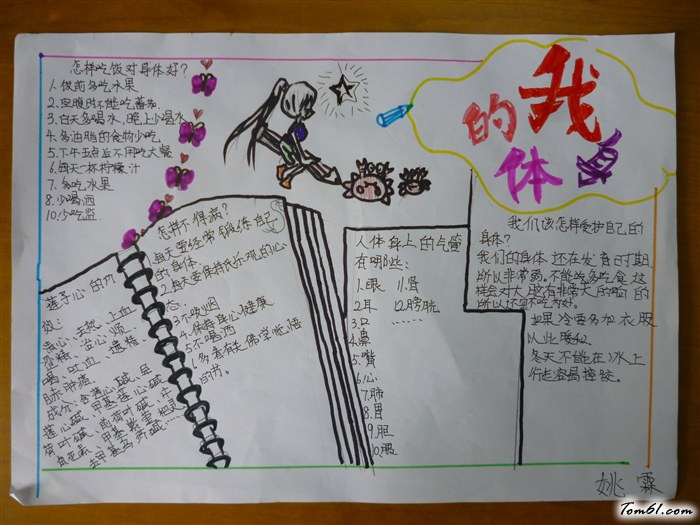 我的身体
怎样吃饭对身体好？
1.饭前多吃水果
2.空腹时不能吃番茄
3.白天多喝水，晚上少喝水
4.多油脂的食物少吃
5.下午五点后不用吃大餐
6.每天一杯柠檬汁
7.多吃水果
8.少喝酒
10.少吃盐
怎样不得病？
1.每天要经常锻炼自己
的身体.
2.每天要保持快乐乐观的心
态.
3.不吸烟
4.保持身心健康
5.不喝酒
的书。
莲子心的功
效:
清心、去热、止血
涩精、治心烦、口
渴、吐血、遗精
肿痛。
成分:含莲心碱、异
莲心碱、甲基莲心碱
荷叶碱、
人体身上的气管
有哪些:
1.眼 11.肾
2.耳 12.膀胱
3.口 ......
4.鼻
5.嘴
6.心
7.肺
8.胃
9.胆
10.眼
我们该怎样爱护自己的
身体?
我们的身体还在发育时期.
所以非常弱.不能吃多吃食这
样会对大
所以还是不吃为好。
如果冷要多加衣服
以此暖和.
冬天不能在冰上
行走容易摔跤。
姚霖
Tom61.com